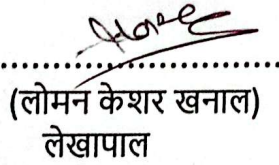 (लोमन केशर खनाल)
लेखापाल